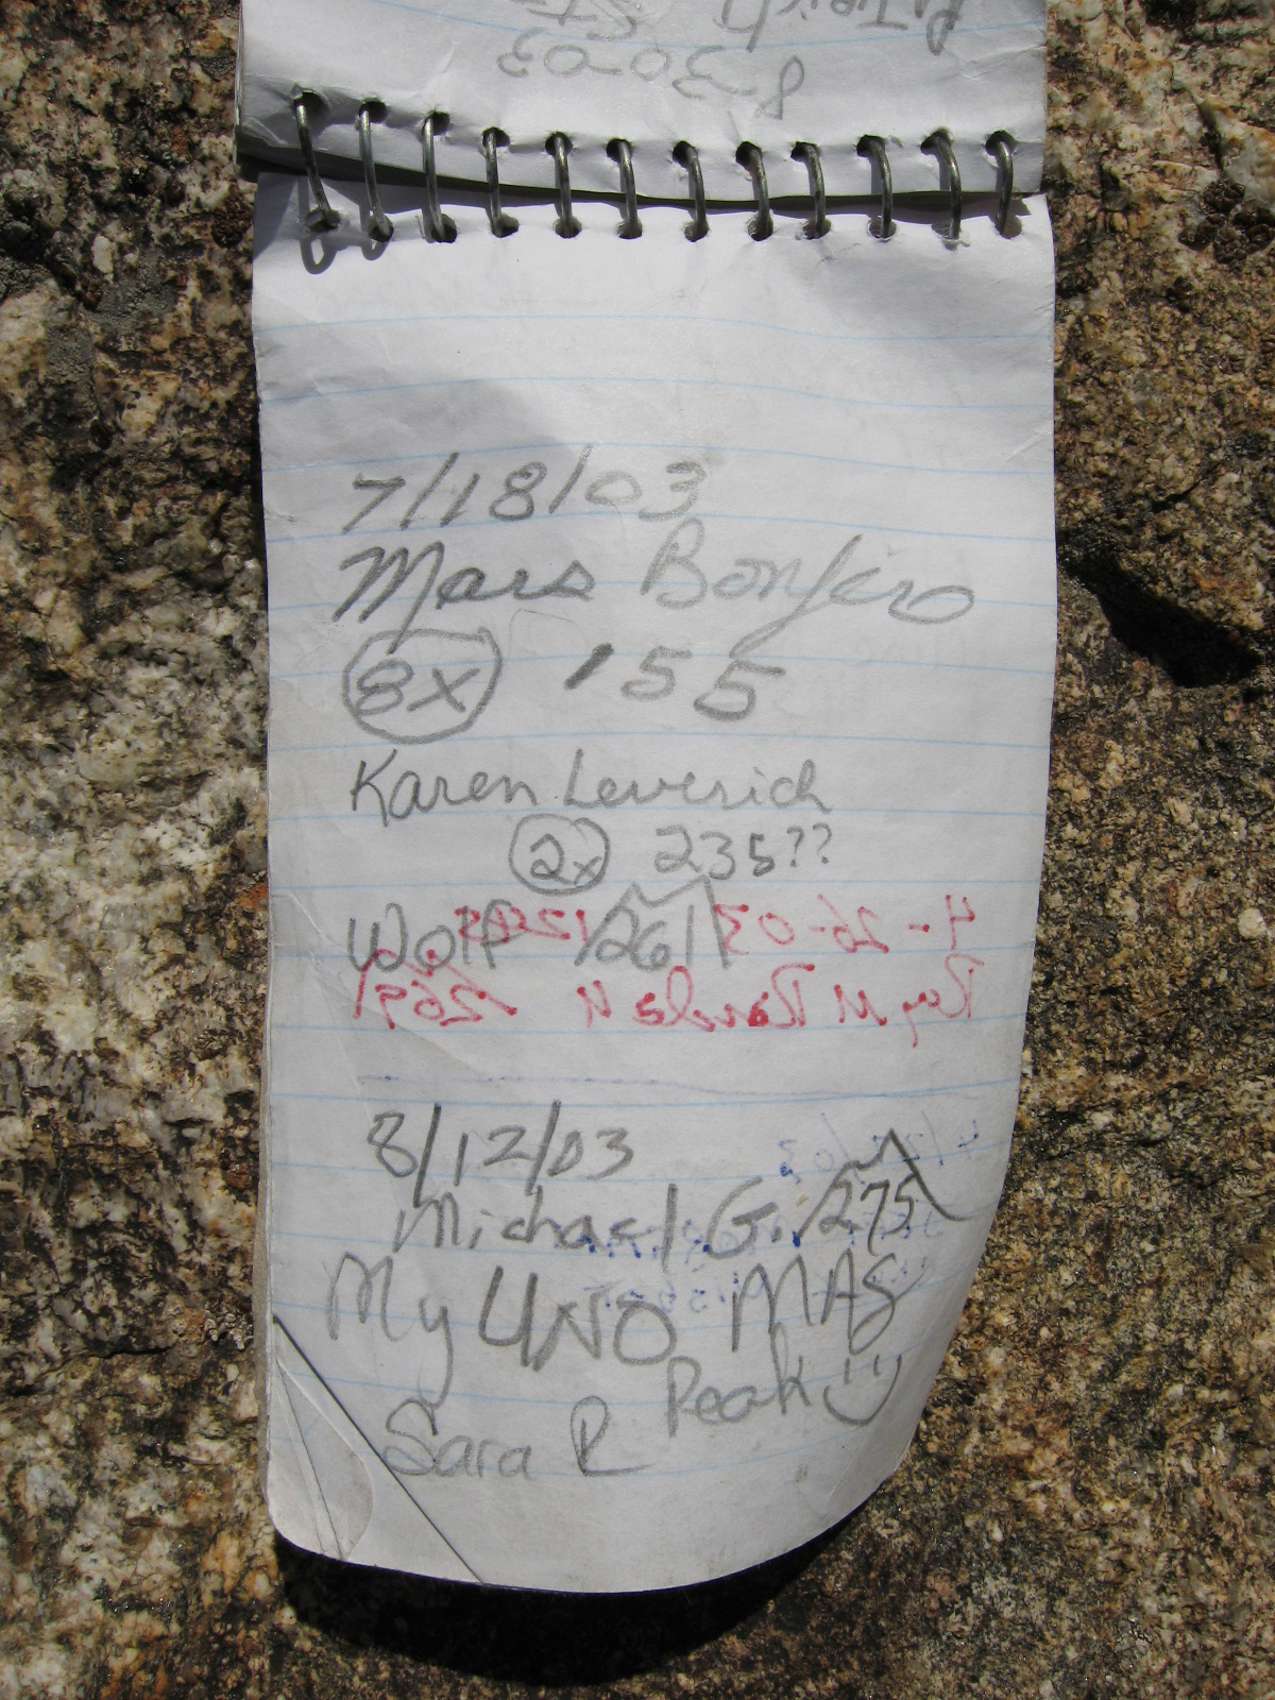 8-30-03
7/18/03
Mars Bonfire
8x 155
Karen Leverich
2x 235??
Wolf 261
4-26-03
Ray M
8/12/03
Michael G. 275
My UNO MAS
Peak!!
Sara R